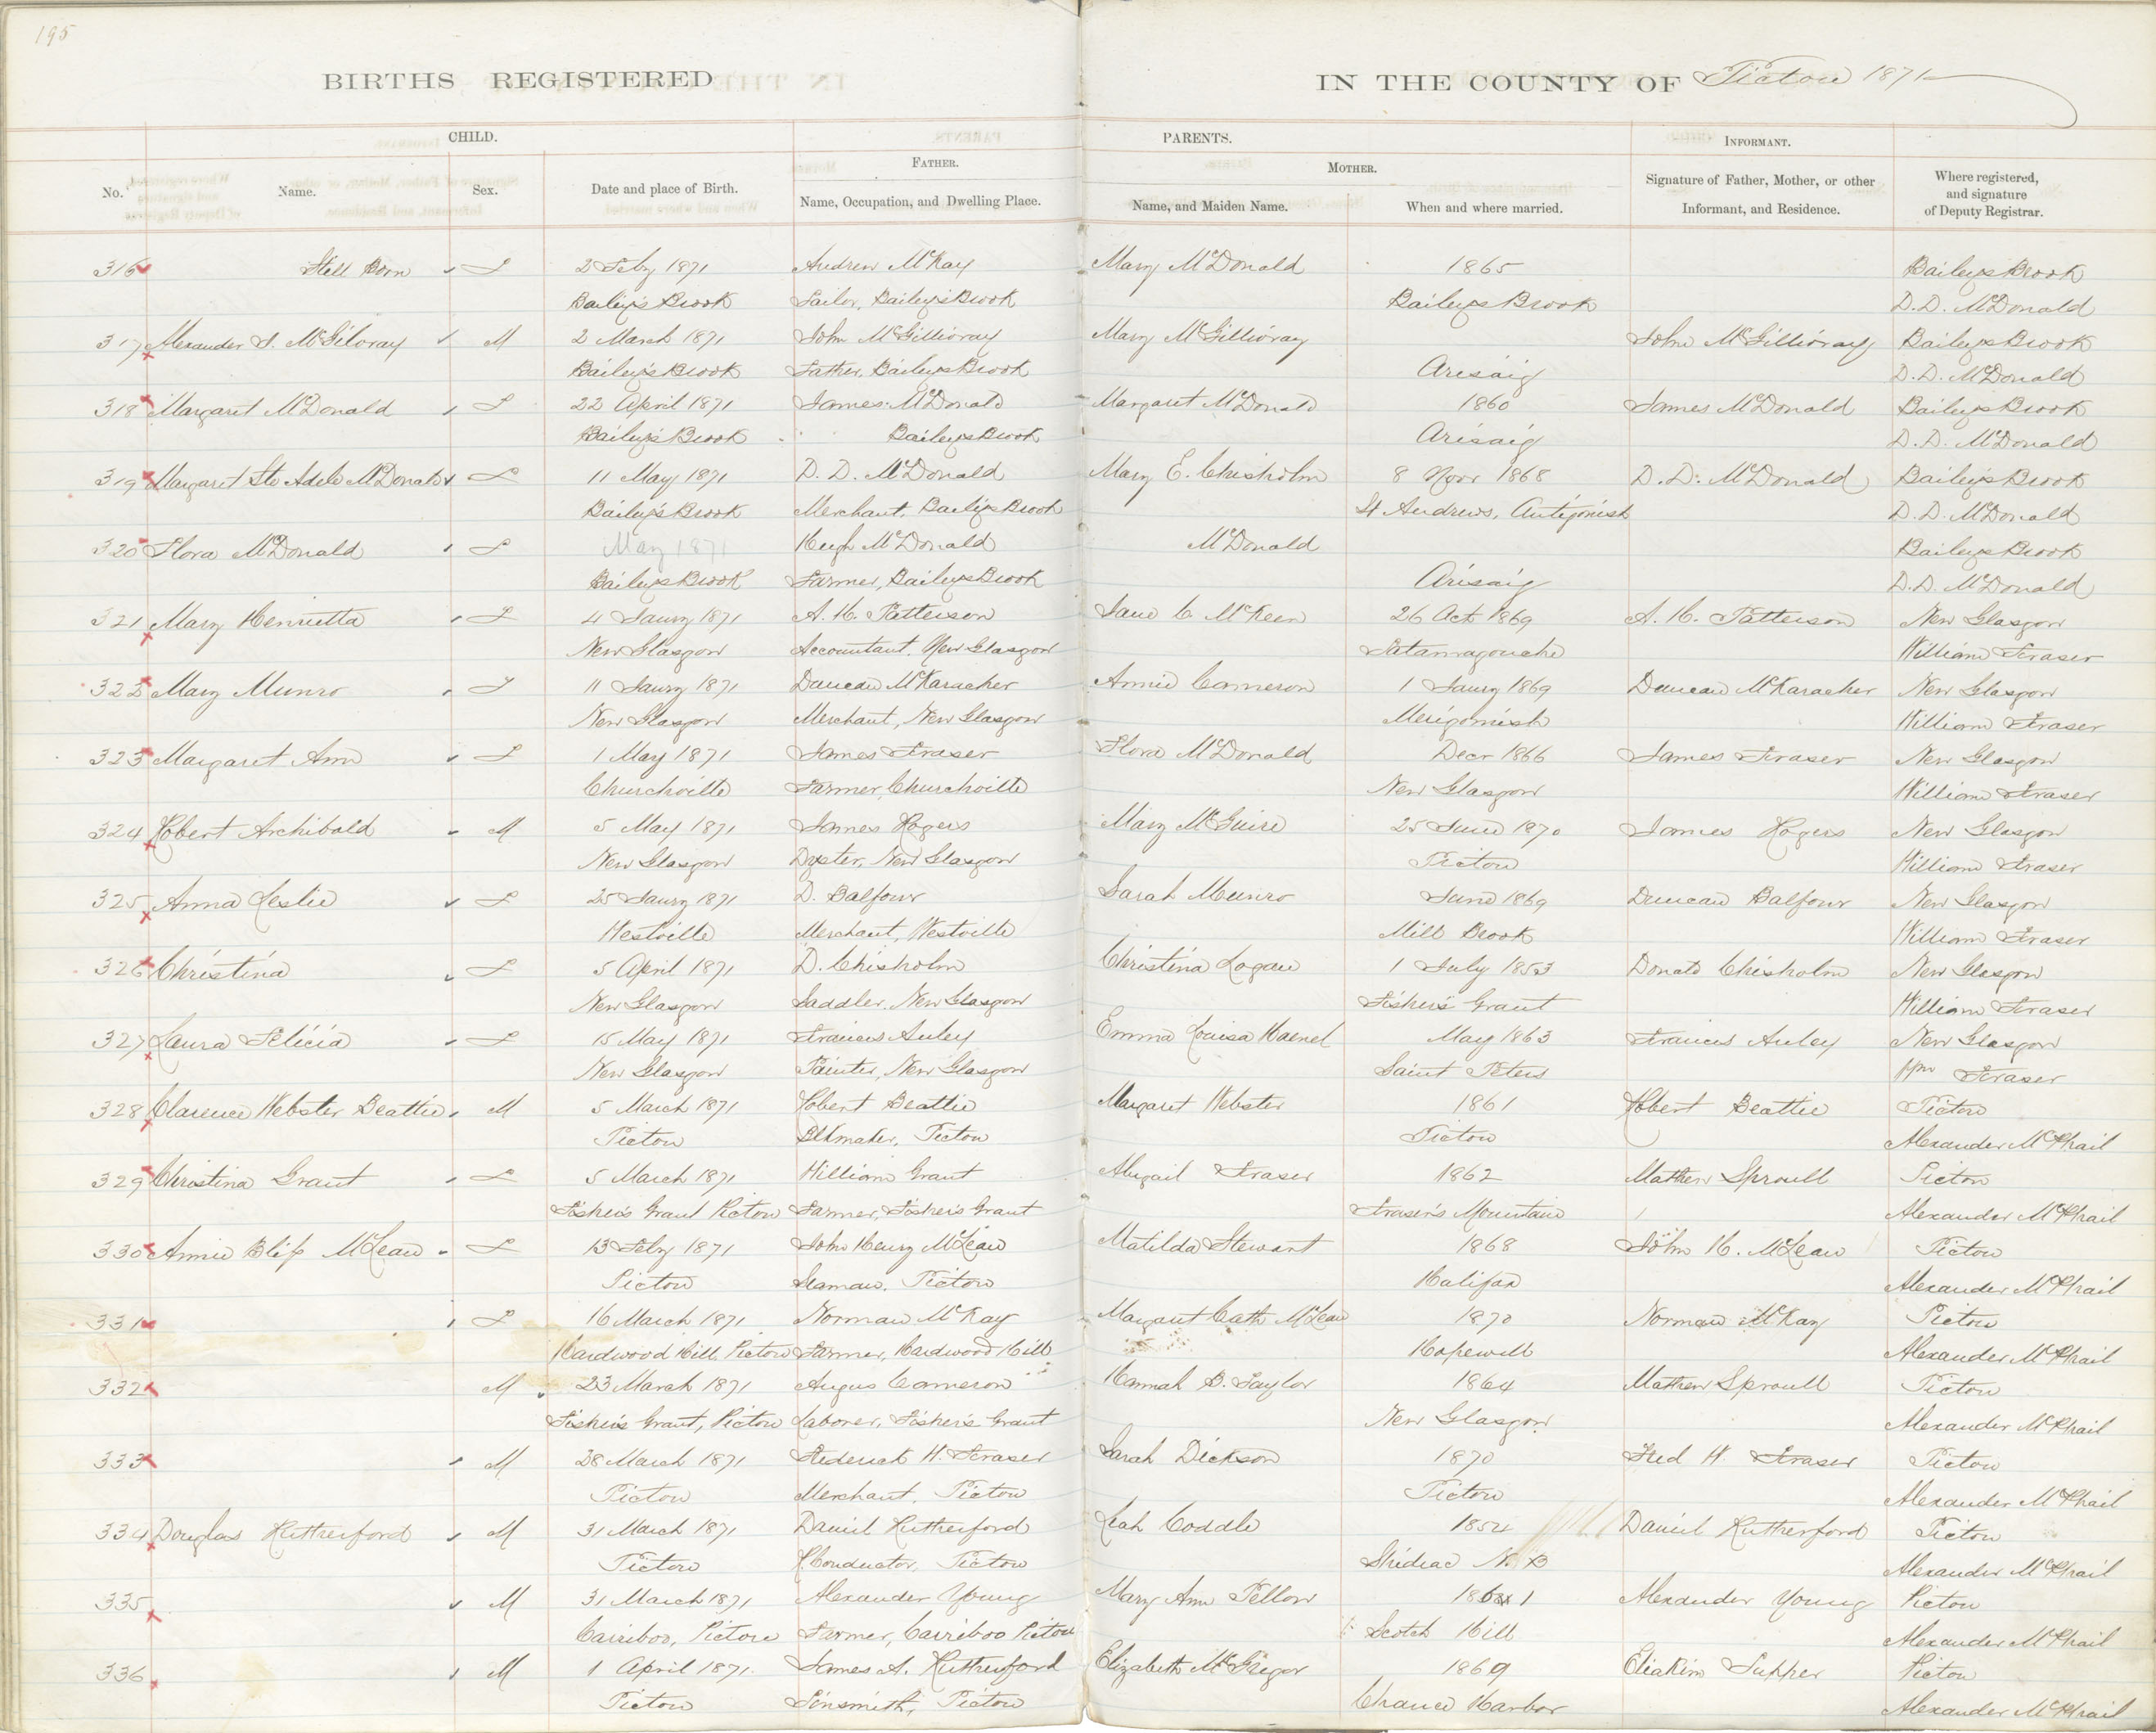 195
BIRTHS REGISTERED IN THE COUNTY OF Pictou 1871
CHILD. PARENTS. INFORMANT.
FATHER. MOTHER.
No. Name. Sex. Date and place of Birth. Name, Occupation, and Dwelling Place. Name, and Maiden Name. When and where married. Signature of Father, Mother, or other Informant, and Residence. Where registered, and signature of Deputy Registrar.
316 Still Born F 2 Feby 1871 Andrew McKay Mary McDonald 1865 Baileys Brook
Bailey's Brook Tailor, Baileys Brook Baileys Brook D.D. McDonald
317 Alexander S. McGilvray M 2 March 1871 John McGillivray Mary McGillivray John McGillivray Baileys Brook
Bailey's Brook Father, Baileys Brook Arisaig D.D. McDonald
318 Margaret McDonald F 22 April 1871 James McDonald Margaret McDonald 1860 James McDonald Baileys Brook
Bailey's Brook Baileys Brook Arisaig D.D. McDonald
319 Margaret Ste Adele McDonald F 11 May 1871 D. D. McDonald Mary E. Chisholm 8 Novr 1868 D.D. McDonald Bailey's Brook
Bailey's Brook Merchant, Bailys Brook St Andrews, Antigonish D.D. McDonald
320 Flora McDonald F May 1871 Hugh McDonald McDonald Baileys Brook
Baileys Brook Farmer, Baileys Brook Arisaig D.D. McDonald
321 Mary Henrietta F 4 Jaury 1871 A. H. Patterson Jane C McKeen 26 Oct 1869 A. H. Patterson New Glasgow
New Glasgow Accountant, New Glasgow Tatamagouche William Fraser
322 Mary Munro F 11 Jaury 1871 Duncan McKaracher Annie Cameron 1 Jaury 1869 Duncan McKaracher New Glasgow
New Glasgow Merchant, New Glasgow Merigomish William Fraser
323 Margaret Ann F 1 May 1871 James Fraser Flora McDonald Decr 1866 James Fraser New Glasgow
Churchville Farmer, Churchville New Glasgow William Fraser
324 Robert Archibald M 5 May 1871 James Rogers Mary McGuire 25 June 1870 James Rogers New Glasgow
New Glasgow Dyster, New Glasgow Pictou William Fraser
325 Anna Leslie F 25 Jaury 1871 D. Balfour Sarah Munro June 1869 Duncan Balfour New Glasgow
Westville Merchant, Westville Mill Brook William Fraser
326 Christina F 5 April 1871 D. Chisholm Christina Logan 1 July 1853 Donald Chisholm New Glasgow
New Glasgow Saddler, New Glasgow Fisher's Grant William Fraser
327 Laura Felicia F 15 May 1871 Francis Auley Emma Louisa Haenel May 1863 Francis Auley New Glasgow
New Glasgow Painter, New Glasgow Saint Peters Wm Fraser
328 Clarence Webster Beattie M 5 March 1871 Robert Beattie Margaret Webster 1861 Robert Beattie Pictou
Pictou Blkmaker, Pictou Pictou Alexander McPhail
329 Christina Grant F 5 March 1871 William Grant Abigail Fraser 1862 Mathew Sproull Pictou
Fisher's Grant Pictou Farmer, Fisher's Grant Fraser's Mountain Alexander McPhail
330 Annie Bliss McLean F 13 Feby 1871 John Henry McLean Matilda Stewart 1868 John H. McLean Pictou
Pictou Seaman, Pictou Halifax Alexander McPhail
331 F 16 March 1871 Norman McKay Margaret Cath McLean 1870 Norman McKay Pictou
Hardwood Hill, Pictou Farmer, Hardwood Hill Hopewell Alexander McPhail
332 M 23 March 1871 Angus Cameron Hannah B. Taylor 1864 Mathew Sproull Pictou
Fisher's Grant, Pictou Laborer, Fisher's Grant New Glasgow Alexander McPhail
333 M 28 March 1871 Frederick H. Fraser Sarah Dickson 1870 Fred H. Fraser Pictou
Pictou Merchant, Pictou Pictou Alexander McPhail
334 Douglas Rutherford M 31 March 1871 Daniel Rutherford Leah Coddle 1854 Daniel Rutherford Pictou
Pictou Conductor, Pictou Shediac N.B Alexander McPhail
335 M 31 March 1871 Alexander Young Mary Ann Pellow Alexander Young Pictou
Cariboo, Pictou Farmer, Carriboo Pictou Scotch Hill Alexander McPhail
336 M 1 April 1871. James A. Rutherford Elizabeth McGregor 1869 Eliakim Tupper Pictou
Pictou Tinsmith, Pictou Chance Harbor Alexander McPhail